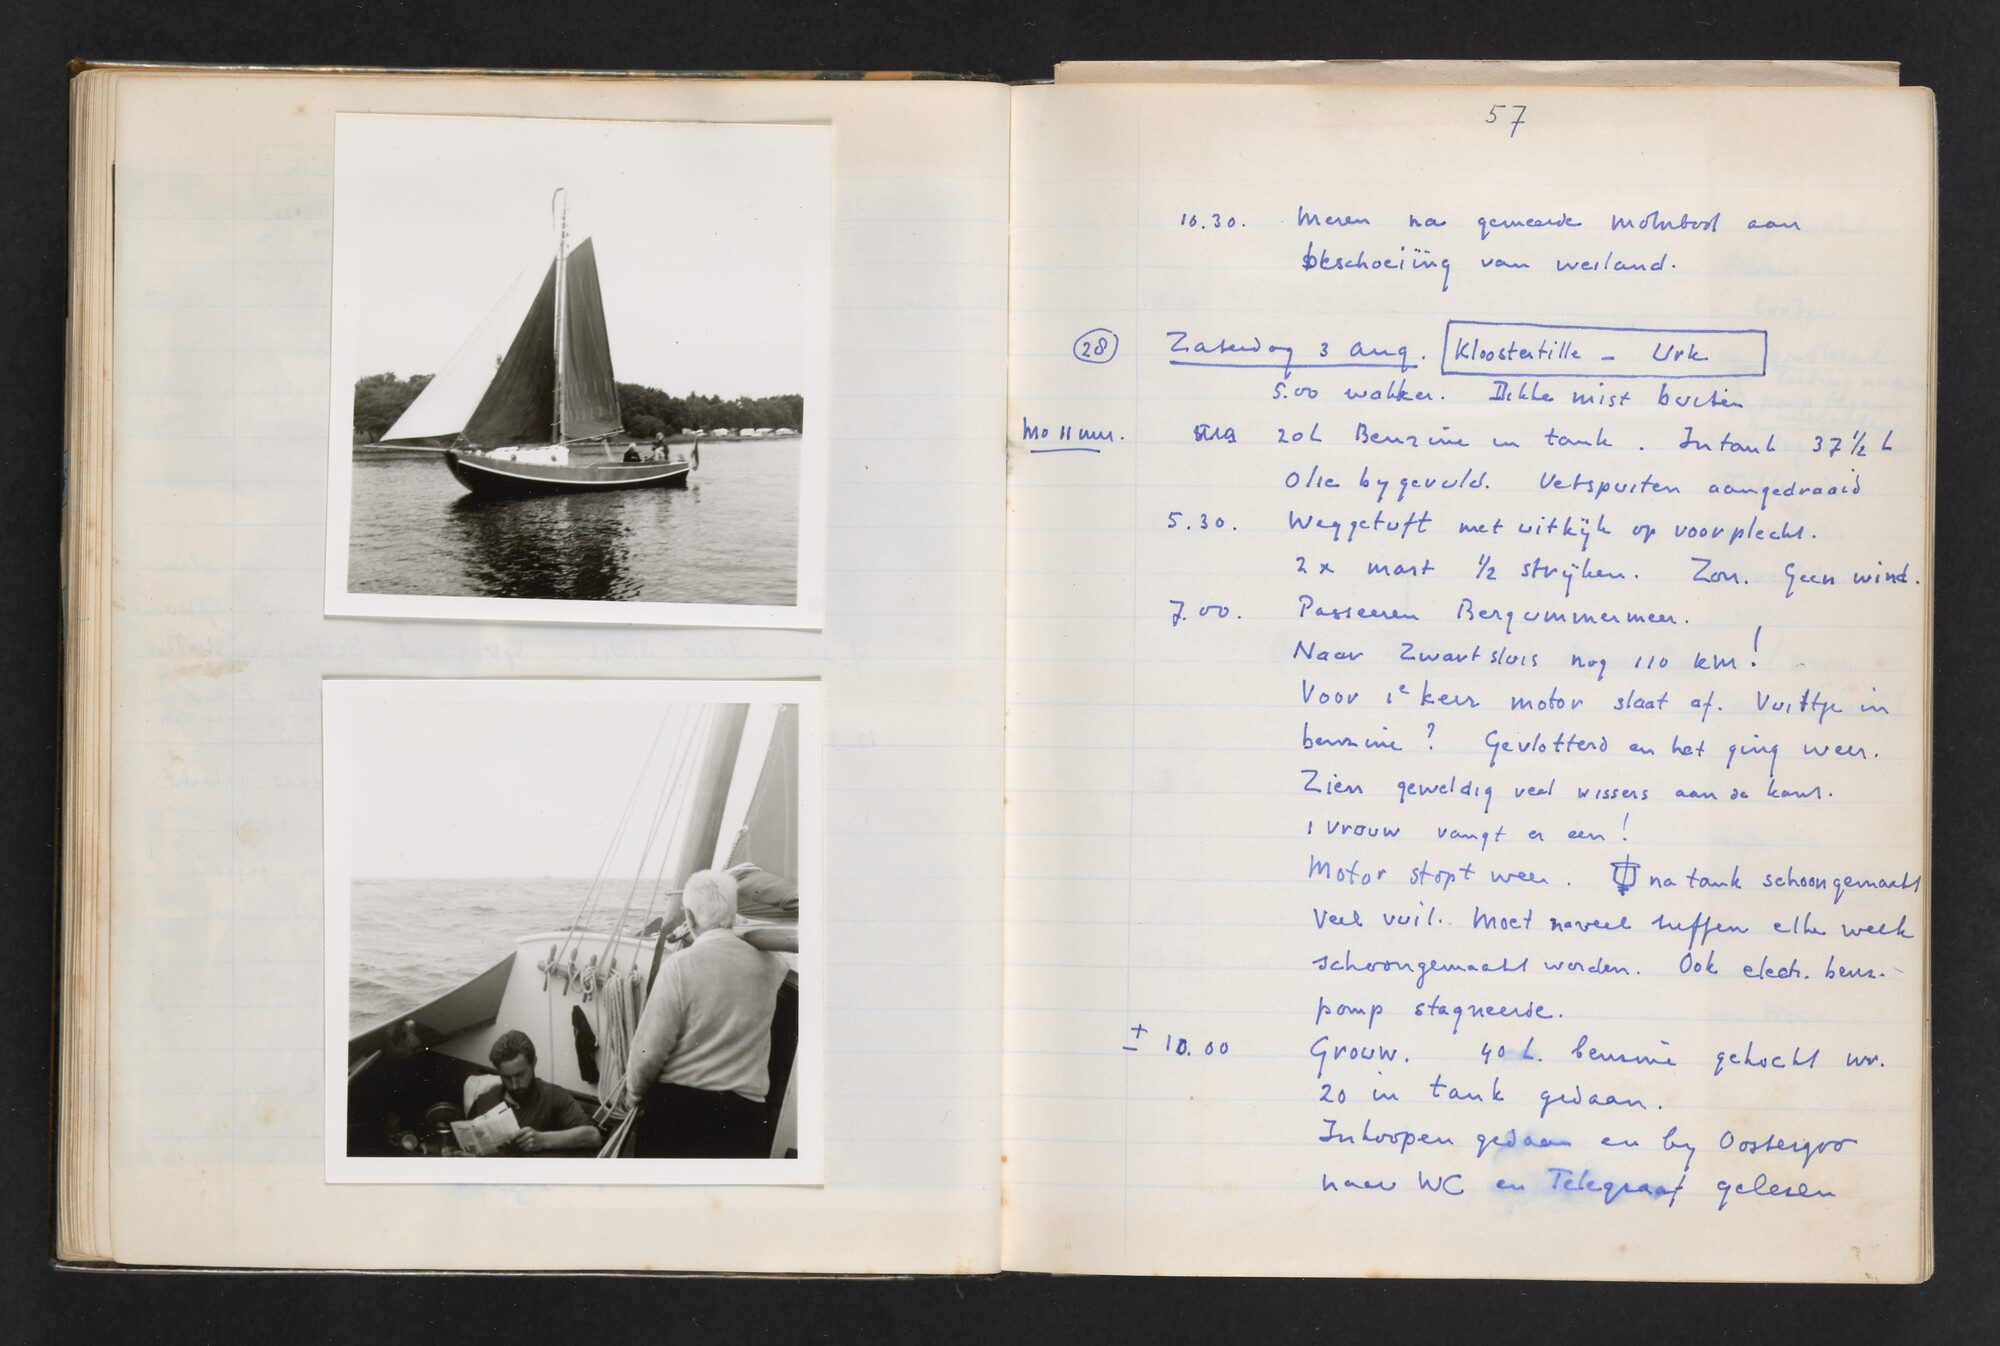 57
10.30. Meren na gemeerde motorboot aan
beschoeiïng van weiland.
28 Zaterdag 3 Aug. Kloostertille - Urk
5.00 wakker. Dikke mist buiten
Mo 11 uur. 20 L Benzine in tank. In tank 37 1/2 L
Olie bygevuld. Vetspuiten aangedraaid
5.30. Weggetuft met uitkijk op voorplecht.
2x mast 1/2 strijken. Zon. Geen wind.
7.00. Passeeren Bergummermeer.
Naar Zwartsluis nog 110 km!
Voor 1e keer motor slaat af. Vuiltje in
benzine? Gevlotterd en het ging weer.
Zien geweldig veel vissers aan de kant.
1 vrouw vangt er een!
Motor stopt weer. na tank schoongemaakt
Veel vuil. Moet elke week
schoongemaakt worden. Ook electr. benz.-
pomp stagneerde.
± 10.00 Grouw. 40 L. benzine gekocht wv.
20 in tank gedaan.
Inkoopen gedaan en by Oostergoo
naar WC en Telegraaf gelezen